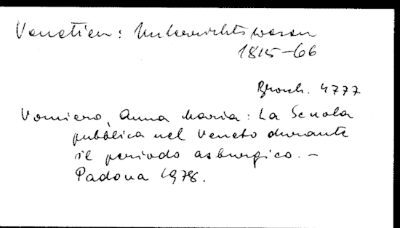 Venetien: Unterrichtswesen
1815-66
Brosch. 4777
Vomiero, Anna Maria: La Scuola
pubblica nel Veneto durante
il periodo asburgico. -
Padova 1978.